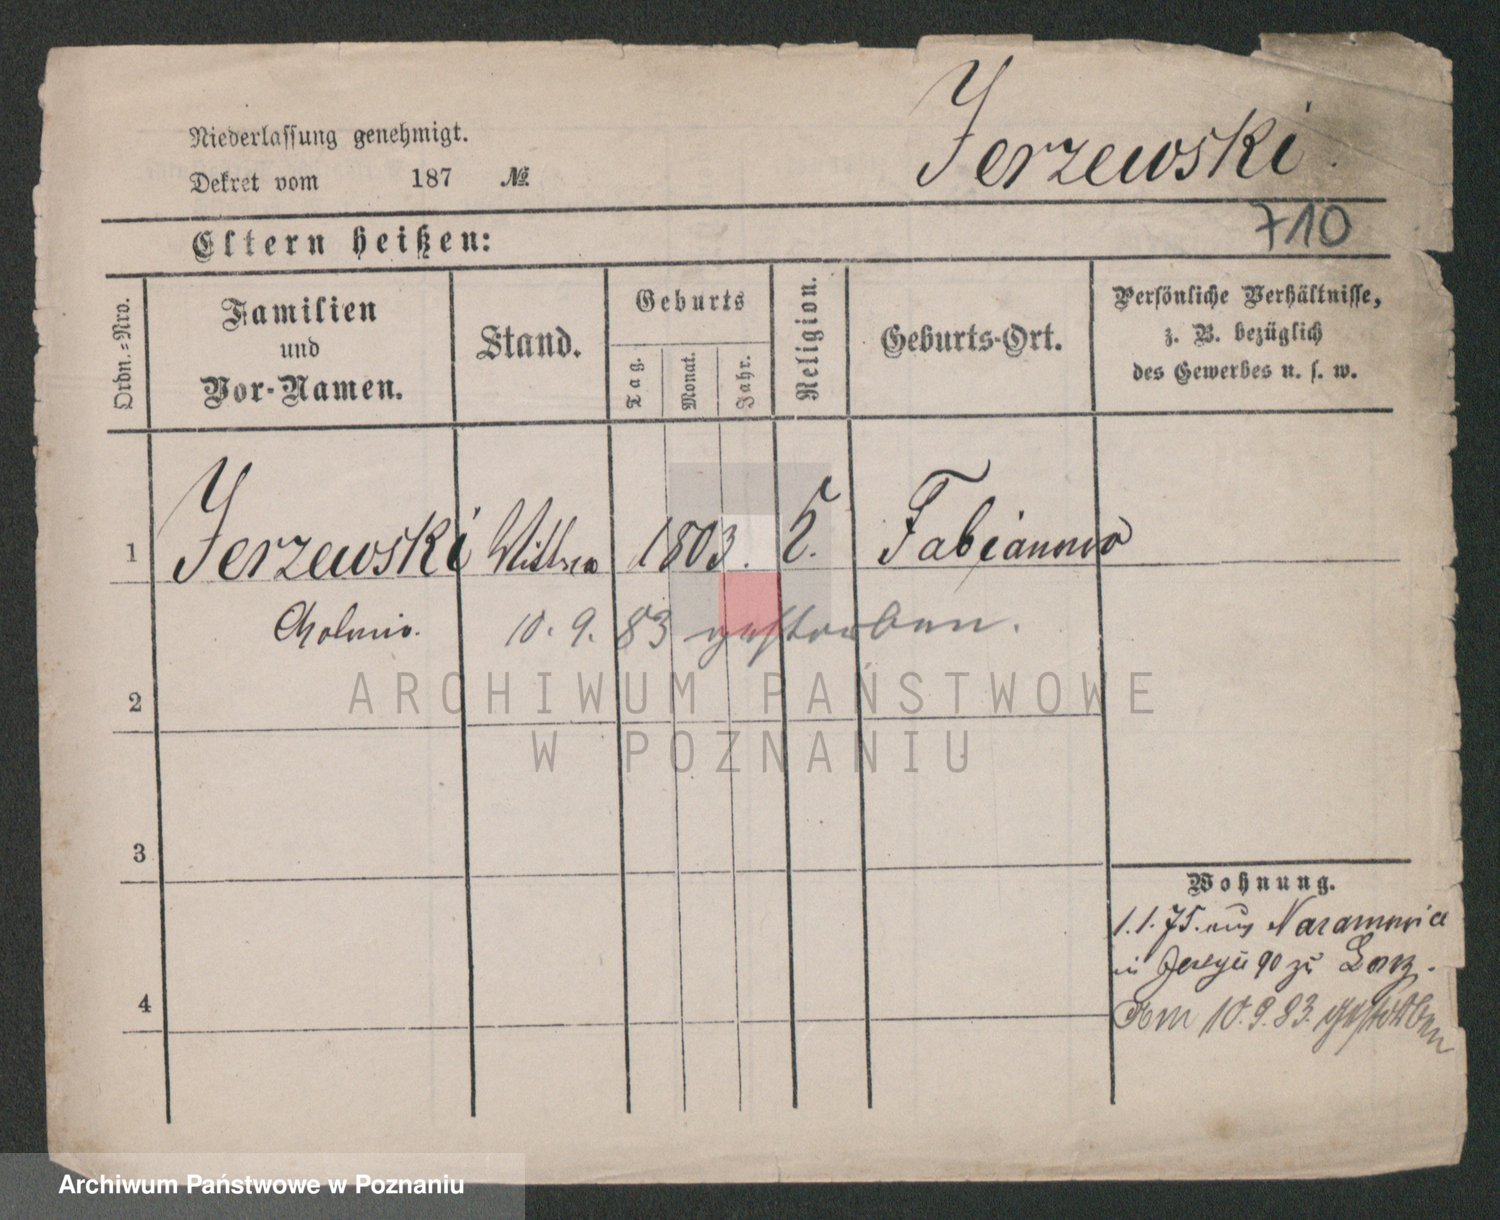 Niederlassung genehmigt.
Dekret vom 187 №
Jerzewski.
710
Eltern heißen:
Ordn.-Nro.
Familien
und
Vor-Namen.
Stand.
Geburts
Tag.
Monat.
Jahr.
Religion.
Geburts-Ort.
Persönliche Verhältnisse,
z. B. bezüglich
des Gewerbes u. s. w.
1
Jerzewski
1803.
Fabianowo
10. 9. 83 gestorben.
2
3
4
Wohnung.
1. 1. 75. aus Naramowice
in 90 zu
Am 10. 9. 83. gestorben
ARCHIWUM PAŃSTWOWE
W POZNANIU
Archiwum Państwowe w Poznaniu